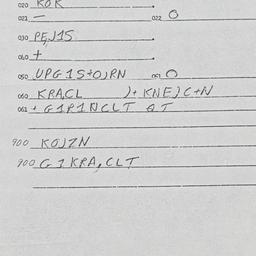 020 KOK
021 — 022 O
030 PEJ1S
040 +
050 UPG1S+OJPN 051 O
060 KPA,CL )+ KNEJC+N
061 + G1P1NCLT QT
900 KOJZN
900 G1KPA,CLT